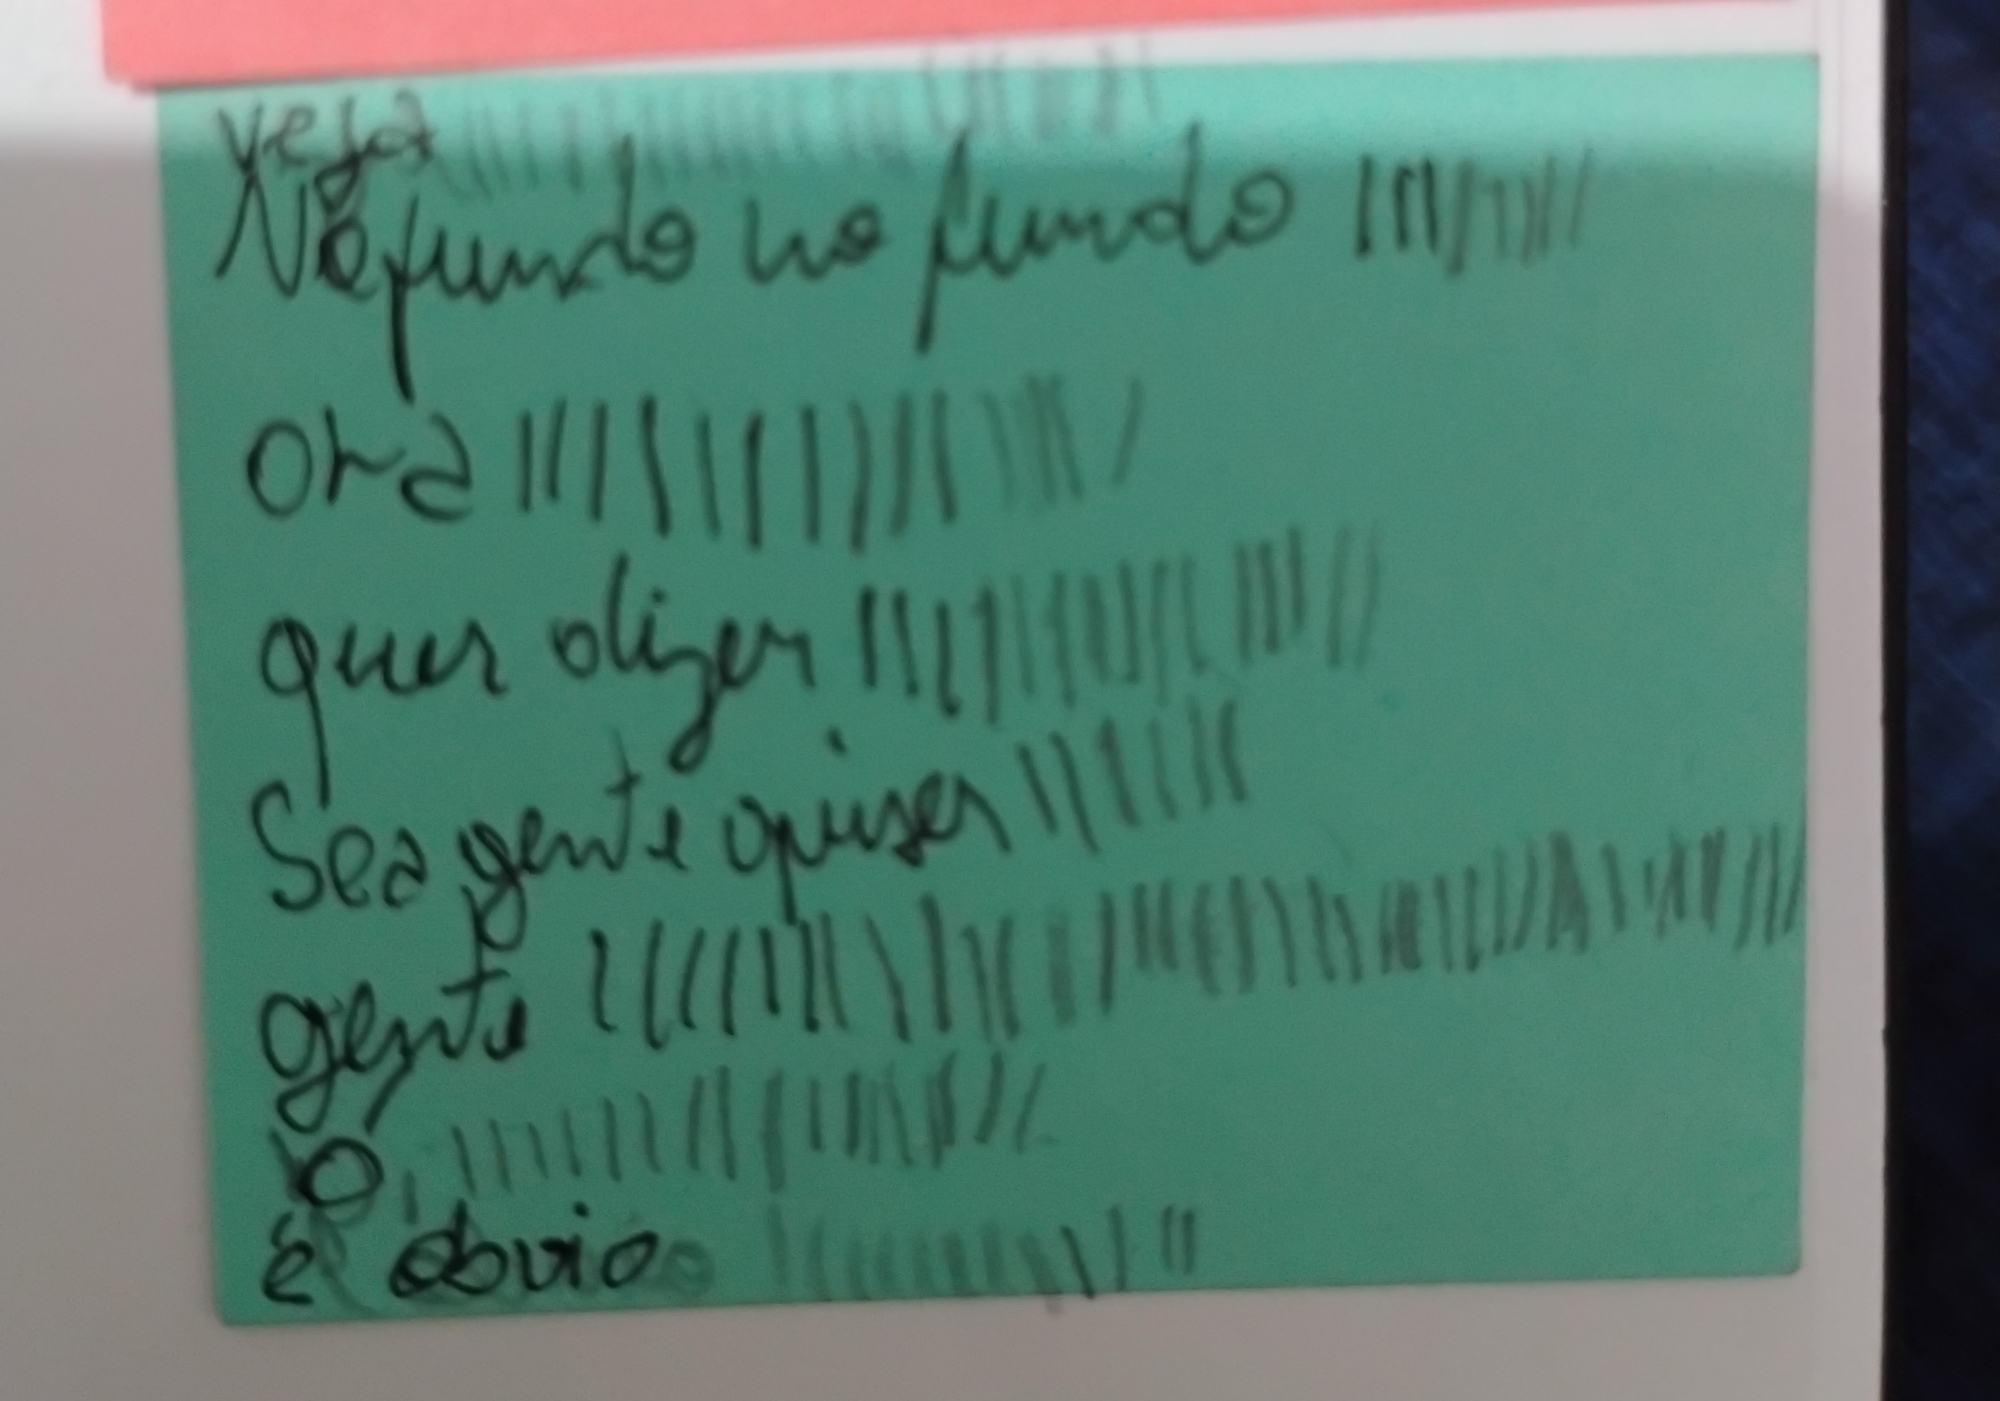 veja |||||||||||||||||||||
No fundo no fundo |||||||||
ora ||||||||||||||||
quer dizer ||||||||||||||||||
Se a gente quiser |||||||
gente ||||||||||||||||||||||||||||||||||||
O, ||||||||||||||||||
é obvio |||||||||||||||